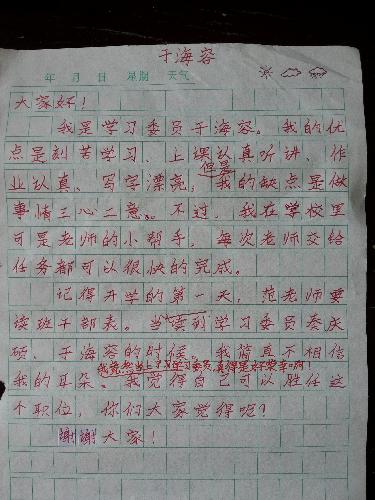 于海容
年 月 日 星期 天气
大家好！
我是学习委员于海容。我的优
点是刻苦学习、上课认真听讲、作
但是
业认真、写字漂亮，我的缺点是做
事情三心二意。不过，我在学校里
可是老师的小帮手，每次老师交给
任务都可以很快的完成。
记得开学的第一天，范老师要
读班干部表。当读到学习委员秦庆
硕、于海容的时候。我简直不相信
我竟然当上了学习委员,真得是好荣幸啊！
我的耳朵。我觉得自己可以胜任这
个职位，你们大家觉得呢？
谢谢大家！